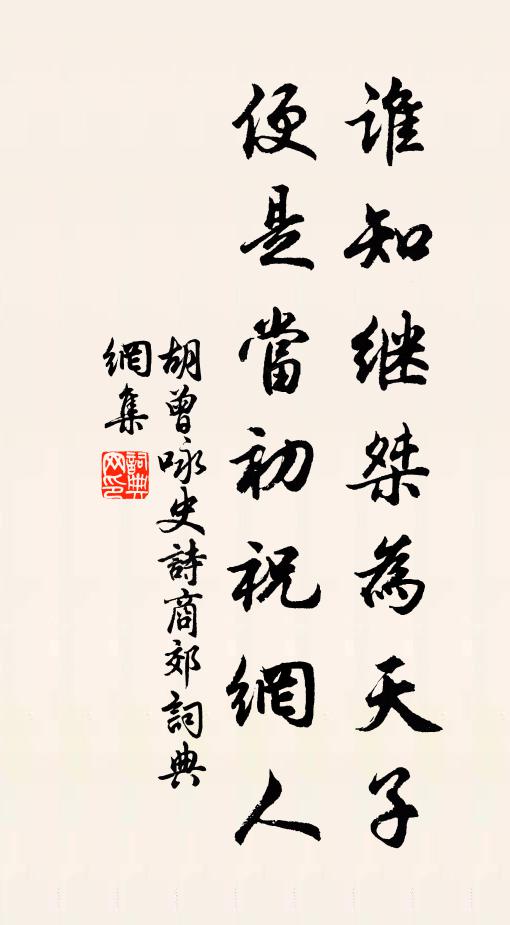 誰知继桀為天子
便是當初祝網人
胡曾咏史詩商郊詞典
網集
詞典
网印